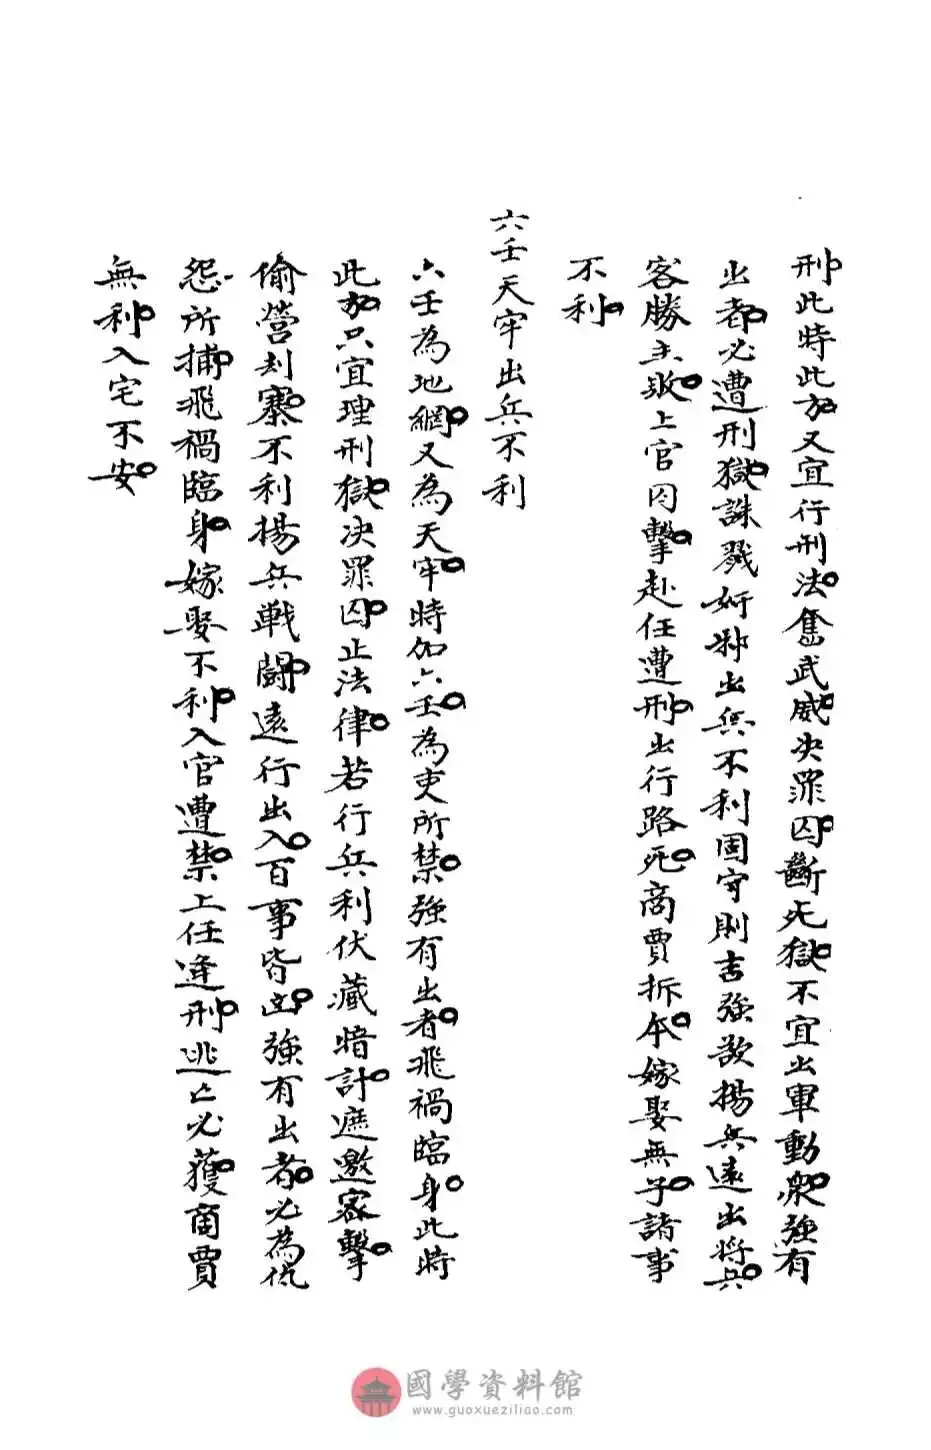 刑此時此方又宜行刑法奮武威决罪囚斷死獄不宜出軍動衆強有
出者必遭刑獄誅戮奸邪出兵不利固守則吉強欲揚兵遠出將兵
客勝主敗上官囚擊赴任遭刑出行路死商賈折本嫁娶無子諸事
不利
六壬天牢出兵不利
六壬為地網又為天牢時加六壬為吏所禁強有出者飛禍臨身此時
此方只宜理刑獄决罪囚止法律若行兵利伏藏暗計遮邀密擊
偷營刦寨不利揚兵戰鬪遠行出入百事皆凶強有出者必為仇
怨所捕飛禍臨身嫁娶不利入官遭禁上任逢刑逃亡必獲商賈
無利入宅不安
國學資料館
www.guoxueziliao.com